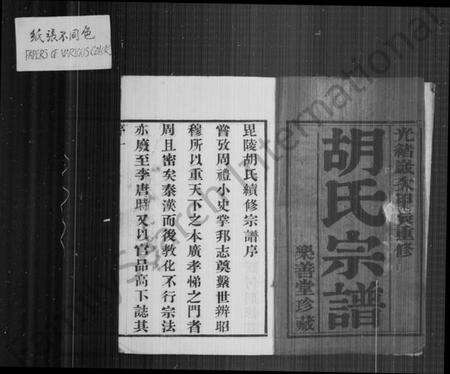 紙張不同色
PAPERS OF VARIOUS COLOR
光緒
重修
胡氏宗譜
樂善堂珍藏
毘陵胡氏續修宗譜序
嘗攷周禮小史掌邦志奠繫世辨昭
穆所以重天下之本廣孝悌之門者
周且密矣秦漢而後敎化不行宗法
亦廢至李唐時又以官品高下誌其
序
International